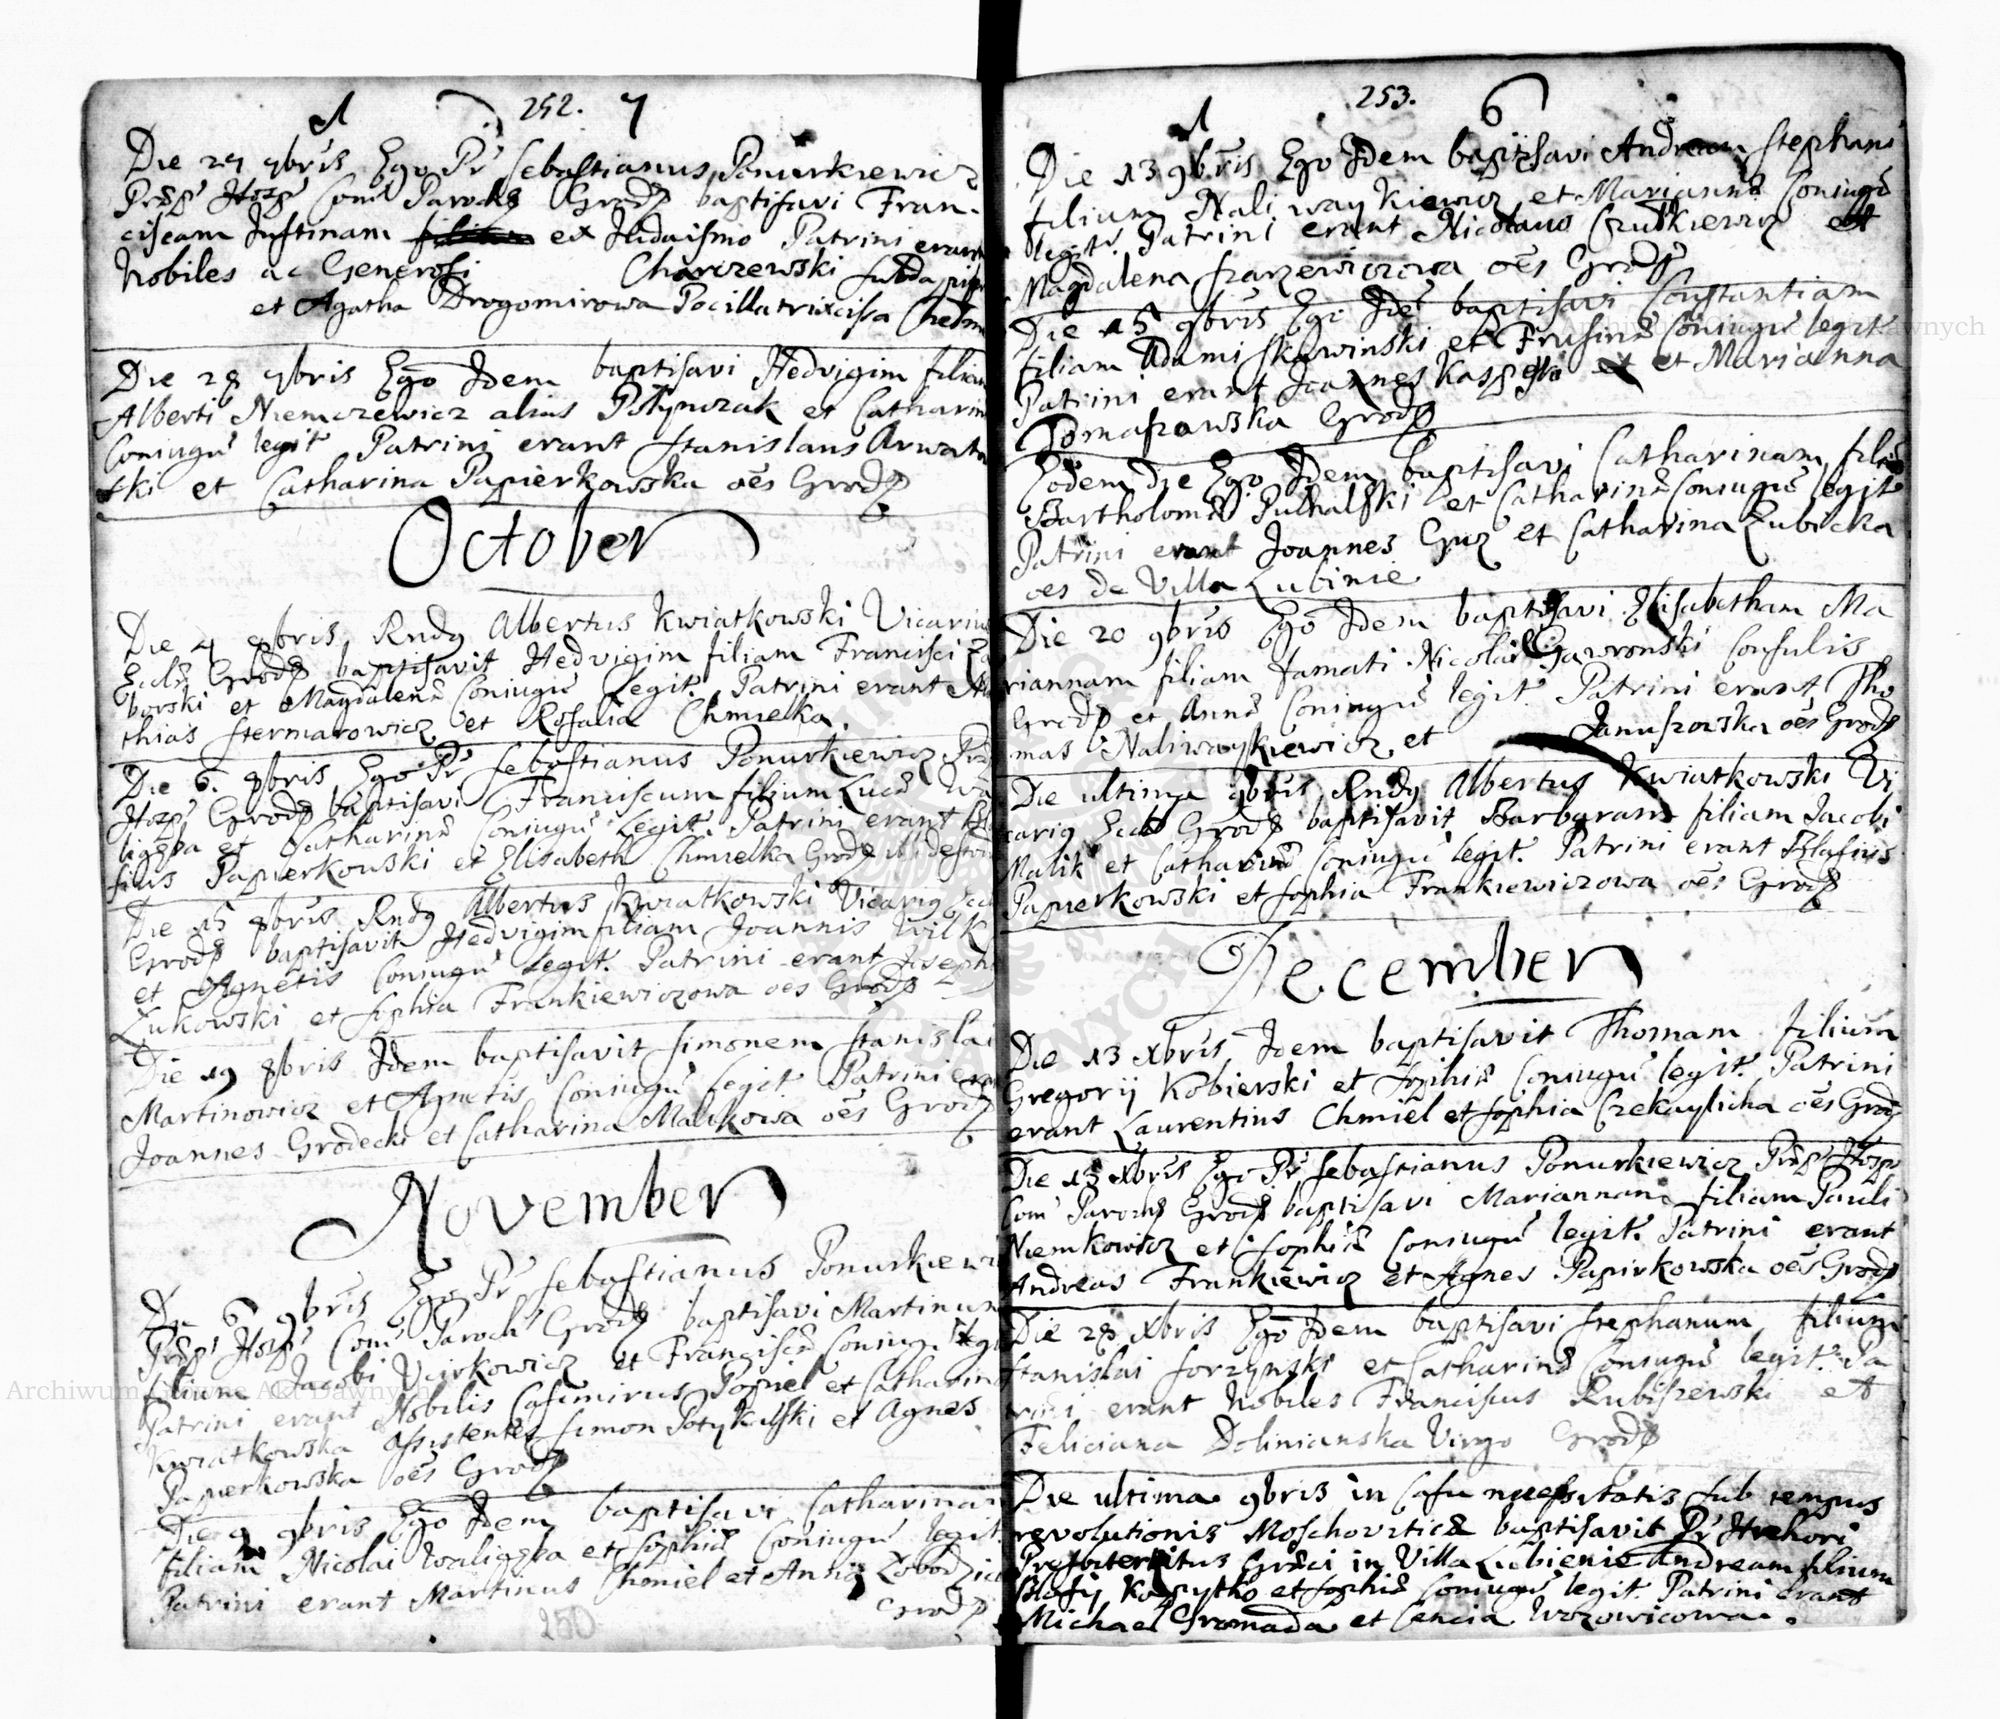 252. 7
Die 27 7bris Ego Pr Sebastianus Ponurkiewicz
Praep Hosp Com Paroch Grod baptisavi Fran-
ciscam Justinam ex Judaismo Patrini erant
Nobiles ac Generosi Charczewski
et Agatha Drogomirowa Pocillatrixcissa
Die 28 7bris Ego Idem baptisavi Hedvigim filiam
Alberti Niemczewicz alias et Catharin
Coniugu legit Patrini erant Stanislaus Arwat
ski et Catharina Papierkowska oes Grod
October
Die 4 8bris Rndg Albertus Kwiatkowski Vicarius
Eccl Grod baptisavit Hedvigim filiam Francisci Za
borski et Magdalena Coniugu legit. Patrini erant Ma
thias Stermarowicz et Rosalia Chmielka.
Die 6. 8bris Ego Pr Sebastianus Ponurkiewicz Prae
Hosp Grod baptisavi Franciscum filium Luca Wa
et Catharina Coniugu legit. Patrini erant Bla
sius Papierkowski et Elisabeth Chmielka Grod
Die 15 8bris Rndg Albertus Kwiatkowski Vicarig Eccl
Grod baptisavit Hedvigim filiam Joannis Wilk
et Agnetis Coniugu legit. Patrini erant Joseph
Zukowski et Sophia Frankiewiczowa oes Grod
Die 19 8bris Idem baptisavit Simonem Stanislai
Martinowicz et Agnetis Coniugu legit Patrini erant
Joannes Grodecki et Catharina Malikowa oes Grod
November
Die 6 9bris Ego Pr Sebastianus Ponurkiewi
Praep Hosp Com Paroch Grod baptisavi Martinum
filium Jacobi et Francisca Coniug legit
Patrini erant Nobilis Casimirus Popiel et Catharina
Kwiatkowska Assistentes Simon Potykalski et Agnes
Papierkowska oes Grod
Die 9 9bris Ego Idem baptisavi Catharinam
filiam Nicolai et Sophia Coniugu legit.
Patrini erant Martinus Chmiel et Anna
Grod
250
253. 6
Die 13 9bris Ego Idem baptisavi Andream Stephani
filium Naliwaykiewicz et Marianna Coniugu
legit. Patrini erant Nicolaus Czutkiewicz et
Magdalena oes Grod
Die 15 9bris Ego Idem baptisavi Constantiam
filiam Adami Skawinski et Frusina Coniugu legit
Patrini erant Joannes et Marianna
Tomaszowska Grod
Eodem die Ego Idem baptisavi Catharinam filia
Bartholomei Puchalski et Catharina Coniugu legit
Patrini erant Joannes Guz et Catharina Zubicka
oes de Villa Lubinie
Die 20 9bris Ego Idem baptisavi Elisabetham Ma
riannam filiam famati Nicolai Gawronski Consulis
Grod et Anna Coniugu legit Patrini erant Tho
mas Naliwaykiewicz et Januszowska oes Grod
Die ultima 9bris Rndg Albertus Kwiatkowski Vi
carig Eccl Grod baptisavit Barbaram filiam Jacobi
Malik et Catharina Coniugu legit. Patrini erant Blasius
Papierkowski et Sophia Frankiewiczowa oes Grod
December
Die 13 Xbris Idem baptisavit Thomam filium
Gregorij Kobierski et Sophia Coniugu legit. Patrini
erant Laurentius Chmiel et Sophia Czekaylicha oes Grod
Die 13 Xbris Ego Pr Sebastianus Ponurkiewicz Praep Hosp
Com Paroch Grod baptisavi Mariannam filiam Pauli
Niemkowicz et Sophia Coniugu legit. Patrini erant
Andreas Frankiewicz et Agnes Papirkowska oes Grod
Die 28 Xbris Ego Idem baptisavi Stephanum filium
Stanislai Sorzynski et Catharina Coniugu legit. Pa
trini erant Nobiles Franciscus Rubiszewski et
Feliciana Dolinianska Virgo Grod
Die ultima 9bris in Casu necessitatis sub tempus
revolutionis Moschovitica baptisavit Pr Hrehori
Presbiter ritus Graeci in Villa Lubienie Andream filium
Blasij Kopytko et Sophia Coniugu legit. Patrini erant
Michael Gromada et Cencia Wozowicowa.